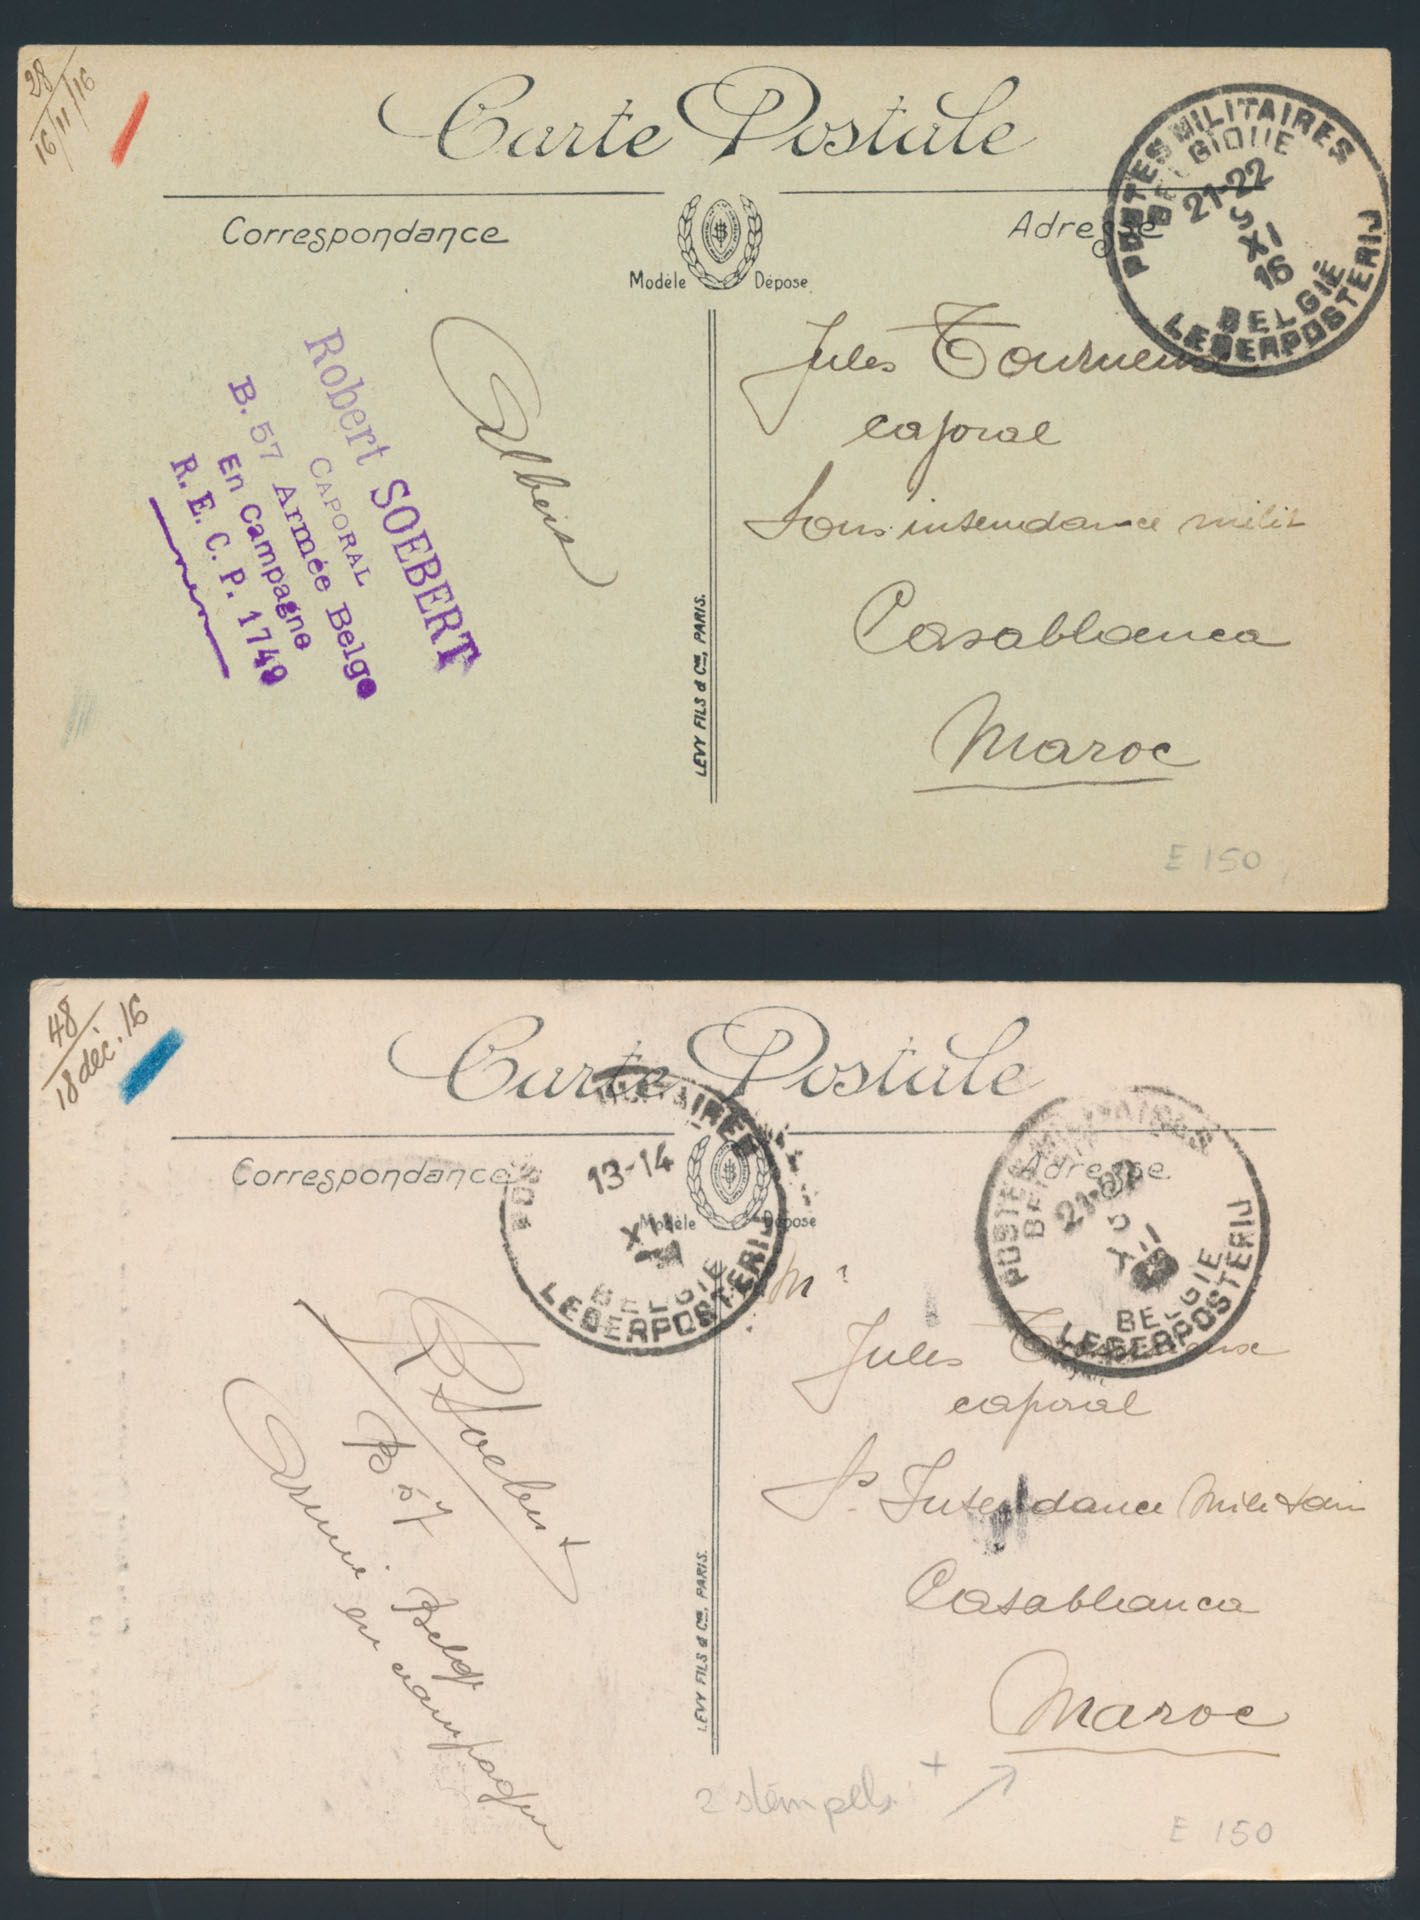 28
16/11/16
Carte Postale
POSTES MILITAIRES
BELGIQUE
21-22
9
XI
16
BELGIË
LEGERPOSTERIJ
Correspondance
Adresse
Modèle Déposé
Robert SOEBERT
CAPORAL
B. 57 Armée Belge
En Campagne
R. E. C. P. 1749
Jules
caporal
Sous intendance milit
Casablanca
Maroc
LEVY FILS & Cie, PARIS.
E 150
48
18 déc. 16
Carte Postale
MILITAIRES
13-14
XII
BELGIË
LEGERPOSTERIJ
POSTES MILITAIRES
21-22
5
XII
BELGIË
LEGERPOSTERIJ
Correspondance
Adresse
Modèle Déposé
Mr
Jules
caporal
Ss Intendance Militair
Casablanca
Maroc
R Soebert
B 57 Belge
Armée en campagne
LEVY FILS & Cie, PARIS.
2 stempels +
E 150